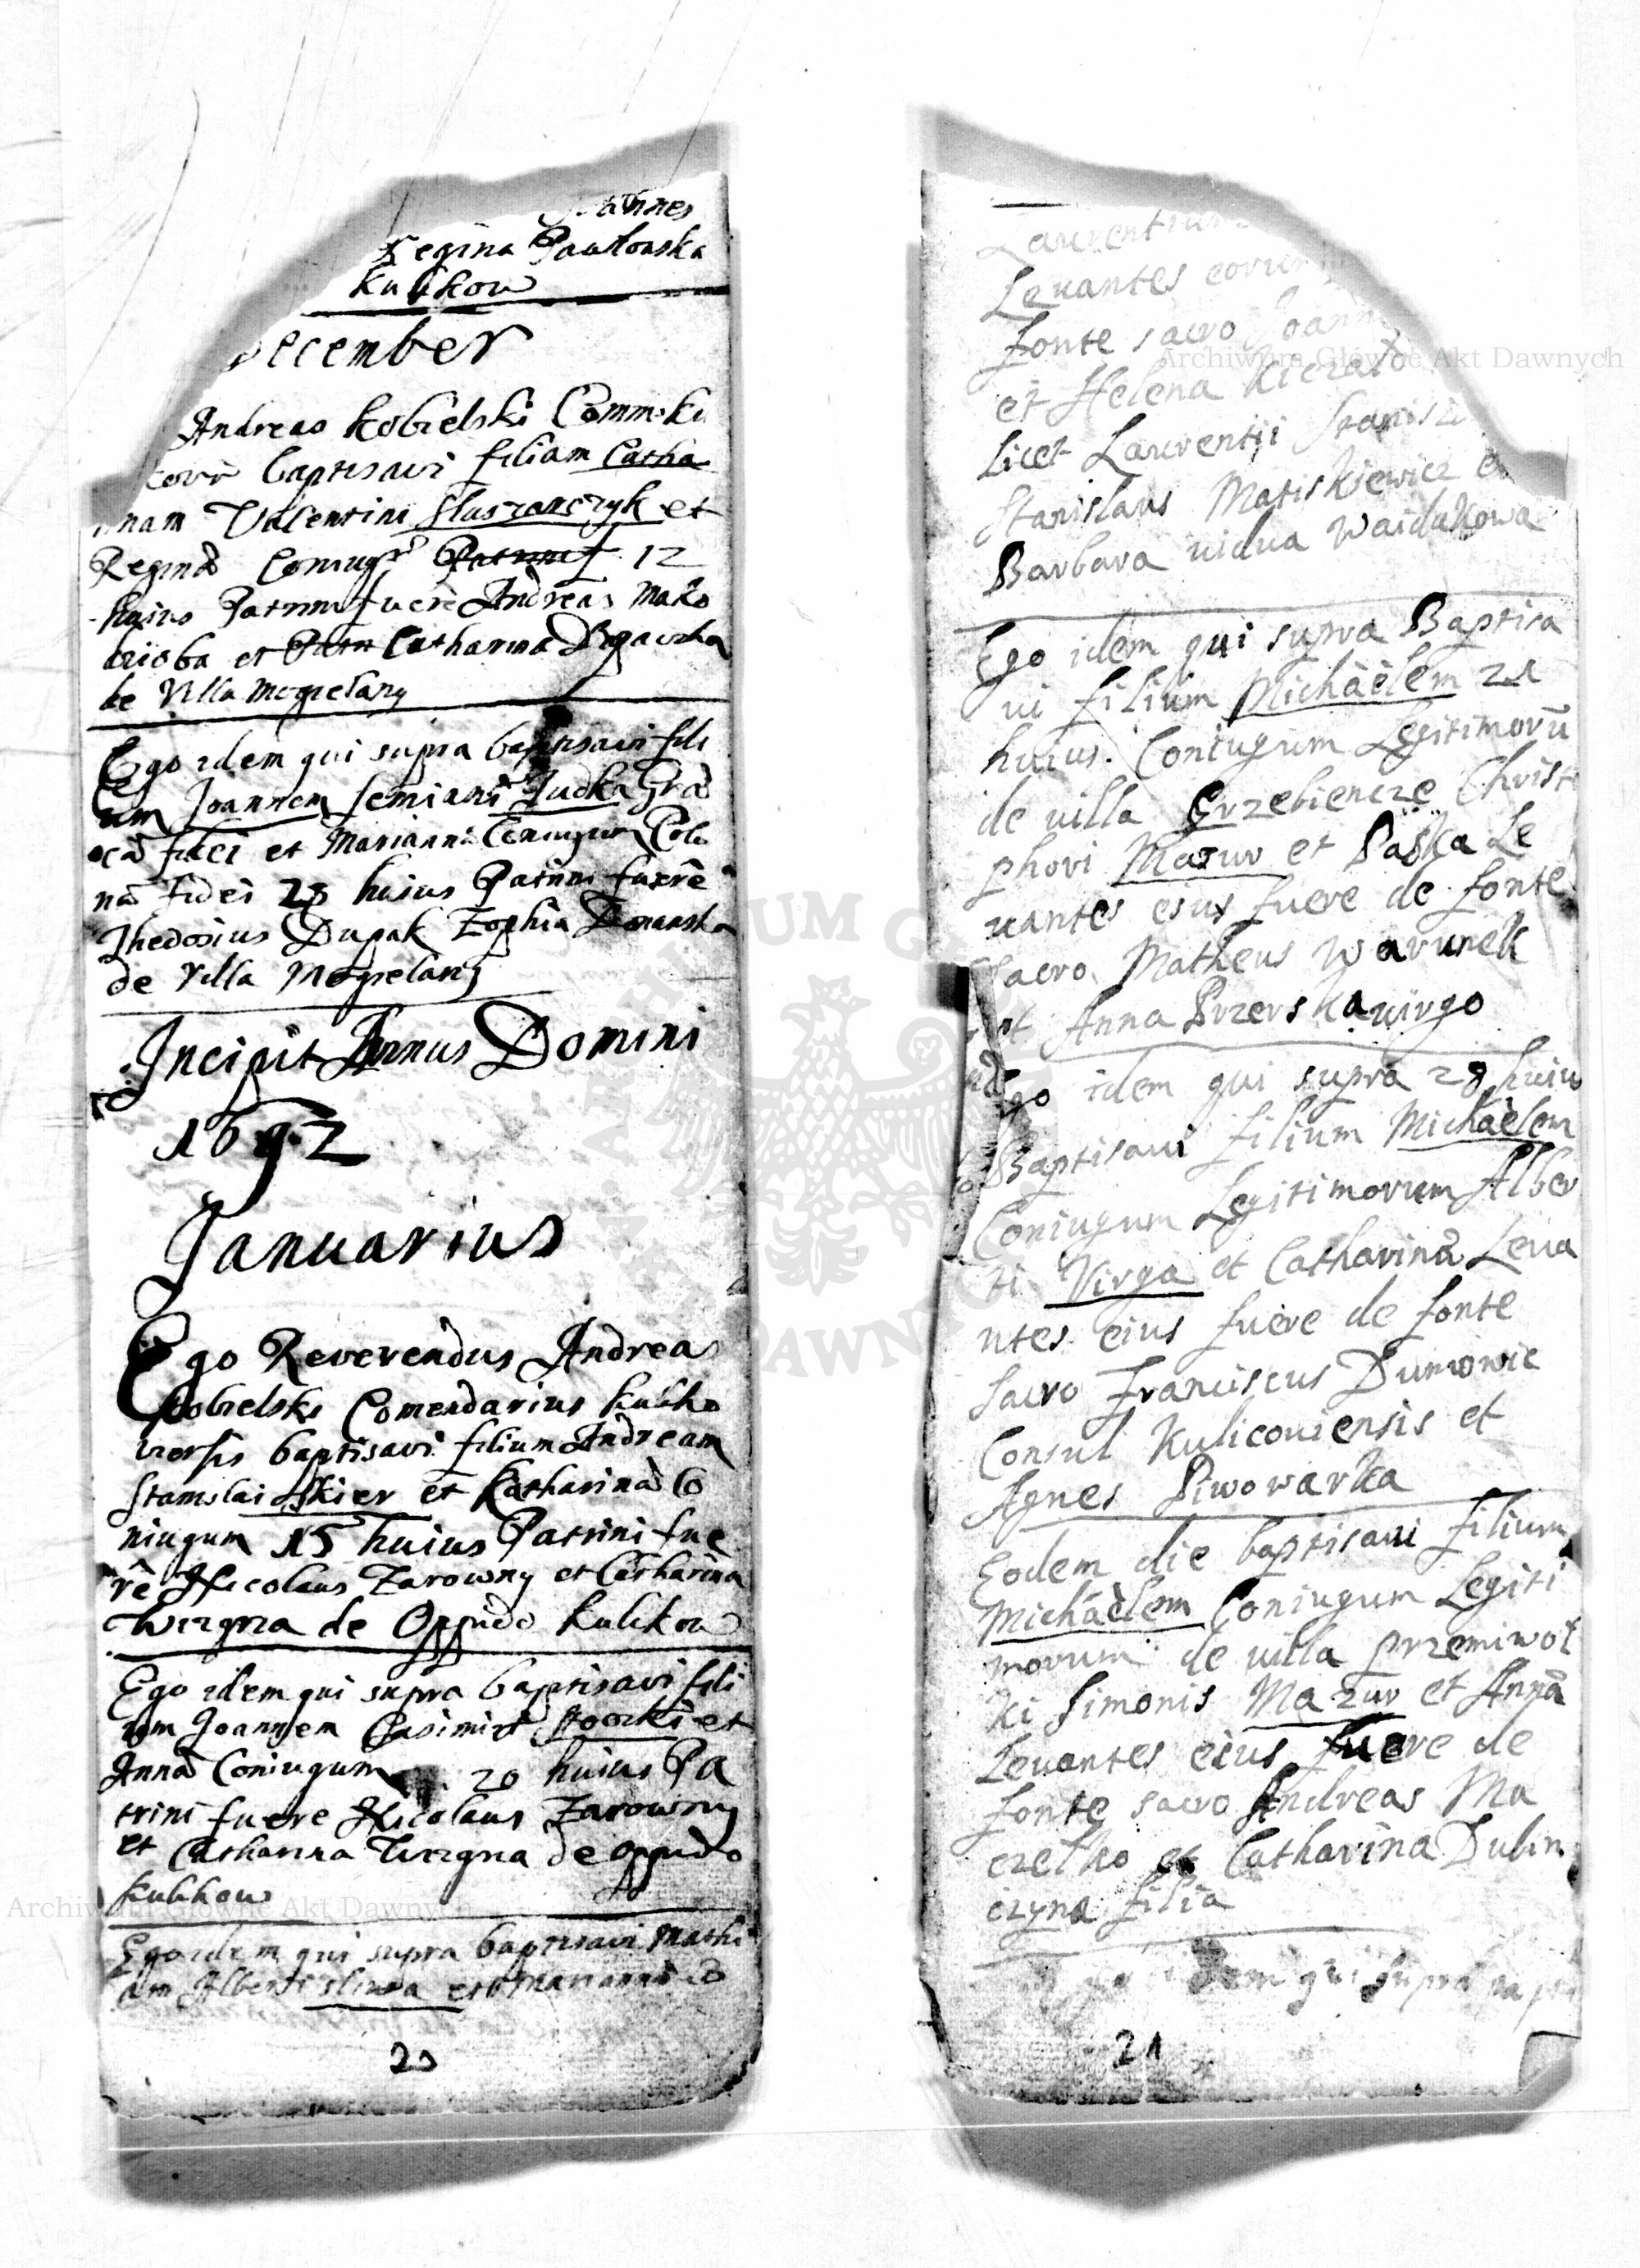 Regina Pawlowska
Kulikow
December
Andreas Kobielski Commen
baptisavi filiam Catha
rinam Valentini Sluszarczyk et
Regina Coniugum 12
huius Patrini fuere Andreas
et Catharina
de Villa Mogielany
Ego idem qui supra baptisavi fili
um Joannem Semiani Judka Grae
ca fidei et Marianna Coniugum
fidei 28 huius Patrini fuere
Thedosius Dupak Zophia
de Villa Mogielany
Incipit Annus Domini
1692
Januarius
Ego Reverendus Andreas
Kobielski Comendarius Kuliko
viensis baptisavi filium Andream
Stanislai Skier et Katharina Co
niugum 15 huius Patrini fue
re Nicolaus Zarowny et Catharina
de Oppido Kulikow
Ego idem qui supra baptisavi fili
um Joannem Casimiri et
Anna Coniugum 20 huius Pa
trini fuere Nicolaus Zarowny
et Catharina de oppido
Kulikow
Ego idem qui supra baptisavi Mathi
am Alberti Sliwka et Marianna co
20
Laurentium
Levantes eorum
fonte sacro Joann
et Helena
licet Laurentii Stanis
Stanislaus Matiskiewicz et
Barbara vidua Waidakowa
Ego idem qui supra Baptisa
vi filium Michàèlem 21
huius. Coniugum Legitimorū
de villa Grzebience Christo
phori Mazur et Paska Le
vantes eius fuere de fonte
sacro Matheus Warunek
et Anna Przerska virgo
Ego idem qui supra 28 huius
Baptisavi filium Michàèlem
Coniugum Legitimorum Alber
ti Virga et Catharina Leva
ntes eius fuere de fonte
sacro Franciscus Dunowic
Consul Kulicoviensis et
Agnes Piwowarka
Eodem die baptisavi filium
Michàèlem Coniugum Legiti
morum de villa przemiwol
ki Simonis Mazur et Anna
Levantes eius fuere de
fonte sacro Andreas Ma
czetko et Catharina Dubin
czyna filia
idem qui supra bapti
21
Archiwum Główne Akt Dawnych
Archiwum Główne Akt Dawnych
ARCHIWUM GŁÓWNE AKT DAWNYCH